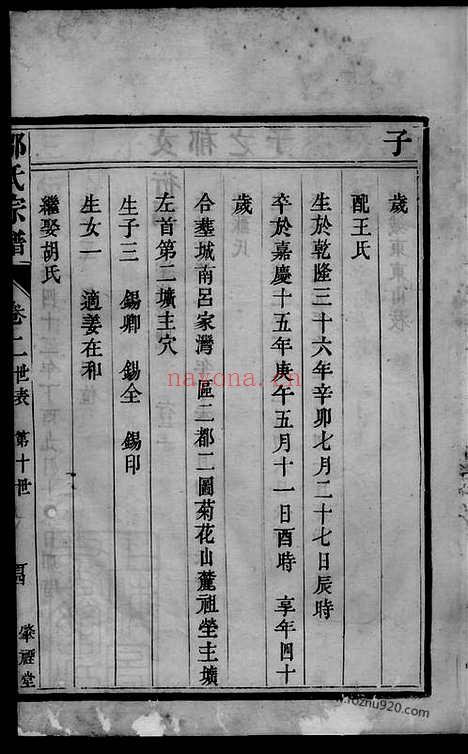 子
歲
配王氏
生於乾隆三十六年辛卯七月二十七日辰時
卒於嘉慶十五年庚午五月十一日酉時 享年四十
歲
合塟城南呂家灣 區二都二圖菊花山麓祖塋主壙
左首第二壙主穴
生子三 錫卿 錫全 錫印
生女一 適姜在和
繼娶胡氏
氏宗譜 卷二世表 第十世 肇禋堂
nayona.cn
www.fozhu920.com